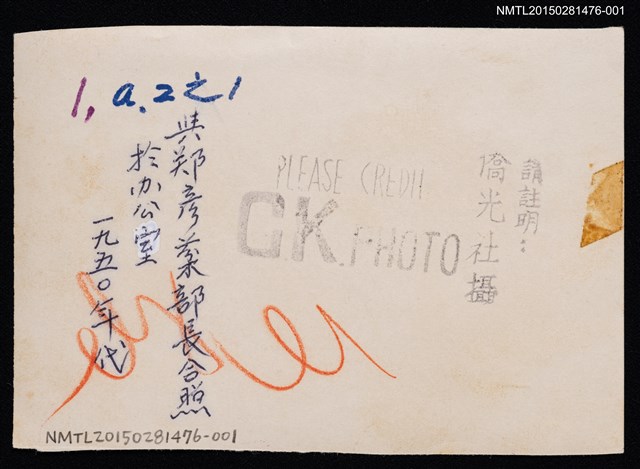 NMTL20150281476-001
1, a.2之1
與郑彦棻部長合照
於办公室
一九五〇年代
請註明：
僑光社攝
PLEASE CREDIT
GK.PHOTO
NMTL20150281476-001